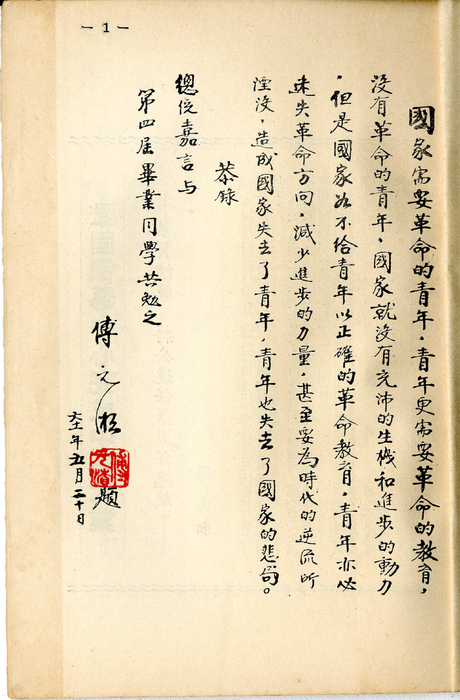 — 1 —
國家需要革命的青年，青年更需要革命的教育，
沒有革命的青年，國家就沒有充沛的生機和進步的動力
，但是國家如不給青年以正確的革命教育，青年亦必
迷失革命方向，減少進步的力量，甚至要為時代的逆流所
湮沒，造成國家失去了青年，青年也失去了國家的悲局。
恭錄
總統嘉言与
第四屆畢業同學共勉之
傅元淞題
六十年五月二十日